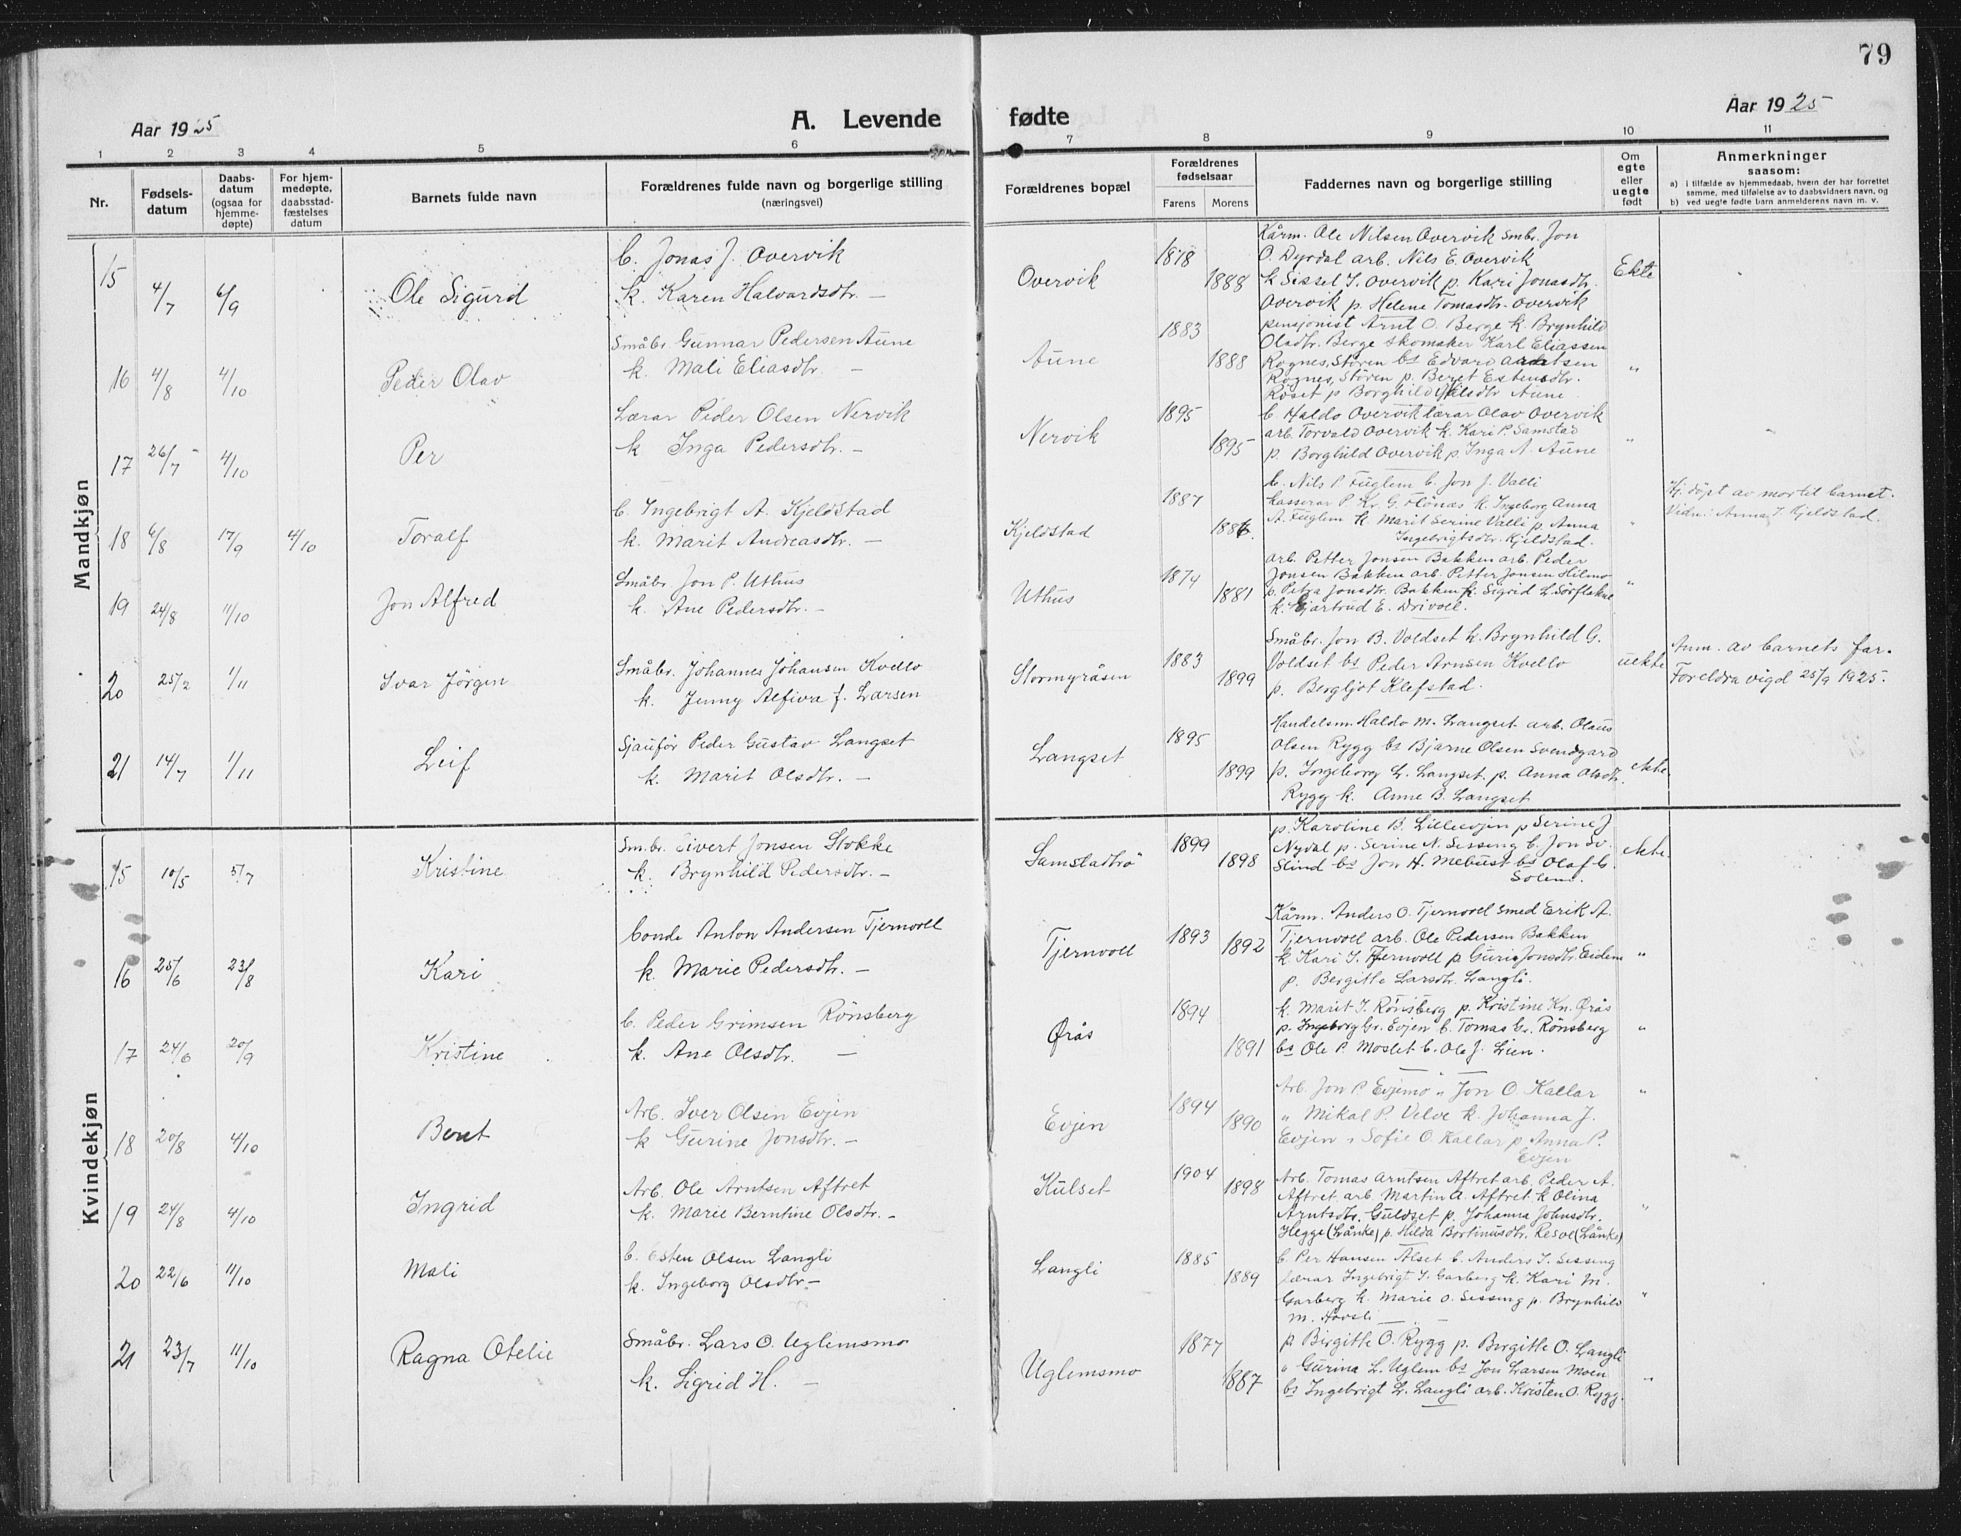 79
Aar 1925
A. Levende
fødte
Aar 1925
1 2 3 4 5 6 7 8 9 10 11
Nr.
Fødsels-
datum
Daabs-
datum
(ogsaa for
hjemme-
døpte)
For hjem-
medøpte,
daabsstad-
fæstelses
datum
Barnets fulde navn
Forældrenes fulde navn og borgerlige stilling
(næringsvei)
Forældrenes bopæl
Forældrenes
fødselsaar
Farens Morens
Faddernes navn og borgerlige stilling
Om
egte
eller
uegte
født
Anmerkninger
saasom:
a) i tilfælde av hjemmedaab, hvem der har forrettet
samme, med tilføielse av to daabsvidners navn, og
b) ved uegte fødte barn anmelderens navn m. v.
Mandkjøn
15 4/7 6/9 Ole Sigurd
b. Jonas J. Overvik
k. Karen Halvardsdtr. —
Overvik 1878 1888
Kårm. Ole Nilsen Overvik smbr. Jon
O. Dyrdal arb. Nils E. Overvik
k Sissel J. Overvik p. Kari Jonasdtr.
Overvik p. Helene Tomasdtr. Overvik
Ekte
16 4/8 4/10 Peder Olav
Småbr. Gunnar Pedersen Aune
k. Mali Eliasdtr. —
Aune 1883 1888
pensjonist Arnt O. Berge k. Brynhild
Oladtr. Berge skomaker Karl Eliassen
Rognes, Støren bs Edvard Arntsen
Rognes, Støren p. Beret Estensdtr.
Røset p Borghild Aune
"
17 26/7 4/10 Per
Lærar Peder Olsen Nervik
k Inga Pedersdtr. —
Nervik 1895 1895
b. Haldo Overvik lærar Olav Overvik
arb. Torvald Overvik k. Kari P. Samstad
p. Borghild Overvik p. Inga A. Aune
"
18 6/8 17/9 4/10 Toralf
b. Ingebrigt A. Kjeldstad
k. Marit Andreasdtr. —
Kjeldstad 1887 1886.
b. Nils P. Fuglem b. Jon J. Valli
kasserar P. Kr. G. Flønas k. Ingeborg Anna
A. Fuglem k Marit Serine Valli p. Anna
Ingebrigtsdtr. Kjeldstad.
"
Hj. døpt av mor til barnet.
Vidn: Anna I. Kjeldstad.
19 24/8 11/10 Jon Alfred
Småbr. Jon P. Uthus
k. Ane Pedersdtr. —
Uthus 1874 1881
arb. Petter Jonsen Bakken arb. Peder
Jonsen Bakken arb. Petter Jonsen Hilmo
p. Petra Jonsdtr. Bakken k. Sigrid L. Sørflakne
k. Gjartrud E. Drivoll.
"
20 25/2 1/11 Ivar Jørgen
Småbr. Johannes Johansen Kvello
k. Jenny Alfiva f. Larsen
Stormyråsen 1883 1899
Småbr. Jon B. Voldset k. Brynhild G.
Voldset bs Peder Arnsen Kvello
p. Bergljot Klefstad.
uekte
Anm. av barnets far.
Foreldra vigd 25/9 1925.
21 14/7 1/11 Leif
Sjauför Peder Gustav Langset
k. Marit Olsdtr. —
Langset 1895 1899
Handelsm. Haldo M. Langset arb. Olaus
Olsen Rygg bs Bjarne Olsen Svendgard
p. Ingeborg L. Langset p. Anna Olsdtr.
Rygg k. Anne B. Langset
ekte.
Kvindekjøn
15 10/5 5/7 Kristine
Sm.br. Sivert Jonsen Stokke
k. Brynhild Pedersdtr. —
Samstadtrø 1899 1898
p. Karoline B. Lilleevjen p Serine J
Nydal p. Serine N. Sessing b. Jon Sv.
Slind bs Jon H. Mebust bs Olaf G.
Solem.
ekte.
16 25/6 23/8 Kari
Conde Anton Andersen Tjernvoll
k. Marie Pedersdtr. —
Tjernvoll 1893 1892
Kårm. Anders O. Tjernvoll smed Erik A.
Tjernvoll arb. Ole Pedersen Bakken
k Kari J. Tjernvoll p Guri Jonsdtr. Eidem
p. Bergitte Larsdtr. Langli.
"
17 24/6 20/9 Kristine
b. Peder Grimsen Rönsberg
k. Ane Olsdtr. —
Ørås 1894 1891
k. Marit I. Rönsberg p. Kristine Kn. Ørås
p. Ingeborg Gr. Evjen b. Tomas Gr. Rönsberg
bs Ole P. Moslet b. Ole J. Lien.
"
18 20/8 4/10 Beret
Arb. Iver Olsen Evjen
k Gurine Jonsdtr. —
Evjen 1894 1890
Arb. Jon P. Evjemo " Jon O. Kallar
" Mikal P. Velve k. Johanna J.
Evjen " Sofie O. Kallar p. Anna P.
Evjen
"
19 24/8 4/10 Ingrid
Arb. Ole Arntsen Aftret
k. Marie Berntine Olsdtr. —
Kulset 1904 1898
Arb. Tomas Arntsen Aftret arb. Peder A.
Aftret arb. Martin A. Aftret k Olina
Arntsdtr. Guldset p. Johanna Johnsdtr.
Hegge (Lånke) p. Hilda Bortinusdtr. Resve (Lånke)
"
20 22/6 11/10 Mali
b. Esten Olsen Langli
k. Ingeborg Olsdtr —
Langli 1885 1889
b. Per Hansen Alset b. Anders I. Sessing
lærar Ingebrigt J. Garberg k. Kari M.
Garberg k. Marie O. Sessing p. Brynhild
M. Hovsli
"
21 23/7 11/10 Ragna Otelie
Småbr. Lars O. Uglemsmo
k. Sigrid H. —
Uglemsmo 1877 1887
p Birgitte O. Rygg p. Birgitte O. Langli
" Gurina L. Uglem bs Jon Larsen Moen
bs Ingebrigt L. Langli arb. Kristen O. Rygg.
"